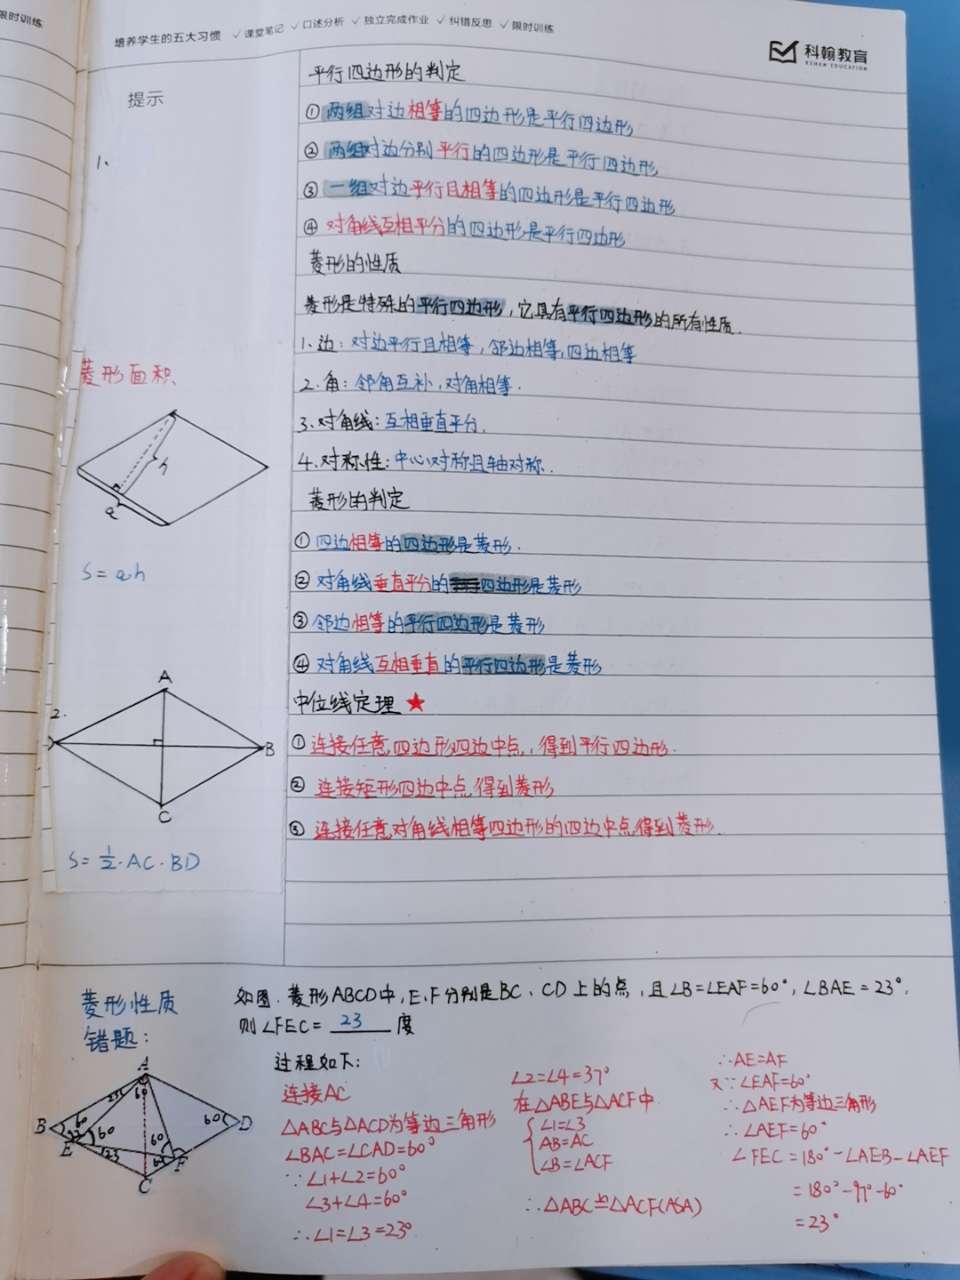 限时训练
培养学生的五大习惯 ✓课堂笔记 ✓口述分析 ✓独立完成作业 ✓纠错反思 ✓限时训练
科翰教育
KEHAN EDUCATION
提示
1、
菱形面积
h
a
S=ah
2.
A
B
C
S=½·AC·BD
平行四边形的判定
①两组对边相等的四边形是平行四边形
②两组对边分别平行的四边形是平行四边形.
③一组对边平行且相等的四边形是平行四边形
④对角线互相平分的四边形是平行四边形
菱形的性质
菱形是特殊的平行四边形,它具有平行四边形的所有性质.
1.边:对边平行且相等,邻边相等,四边相等
2.角:邻角互补,对角相等.
3.对角线:互相垂直平分.
4.对称性:中心对称且轴对称.
菱形的判定
①四边相等的四边形是菱形.
②对角线垂直平分的四边形是菱形
③邻边相等的平行四边形是菱形
④对角线互相垂直的平行四边形是菱形
中位线定理★
①连接任意四边形四边中点,得到平行四边形.
②连接矩形四边中点,得到菱形
③连接任意对角线相等四边形的四边中点得到菱形.
菱形性质
错题:
如图.菱形ABCD中,E.F分别是BC、CD上的点,且∠B=∠EAF=60°,∠BAE=23°.
则∠FEC=23度
A
23
60
B
60
60
60
60
D
E
23
F
C
过程如下:
连接AC
△ABC与△ACD为等边三角形
∠BAC=∠CAD=60°
∵∠1+∠2=60°
∠3+∠4=60°
∴∠1=∠3=23°
∠2=∠4=37°
在△ABE与△ACF中
∠1=∠3
AB=AC
∠B=∠ACF
∴△ABC≌△ACF(ASA)
∴AE=AF
又∵∠EAF=60°
∴△AEF为等边三角形
∴∠AEF=60°
∠FEC=180°-∠AEB-∠AEF
=180°-97°-60°
=23°